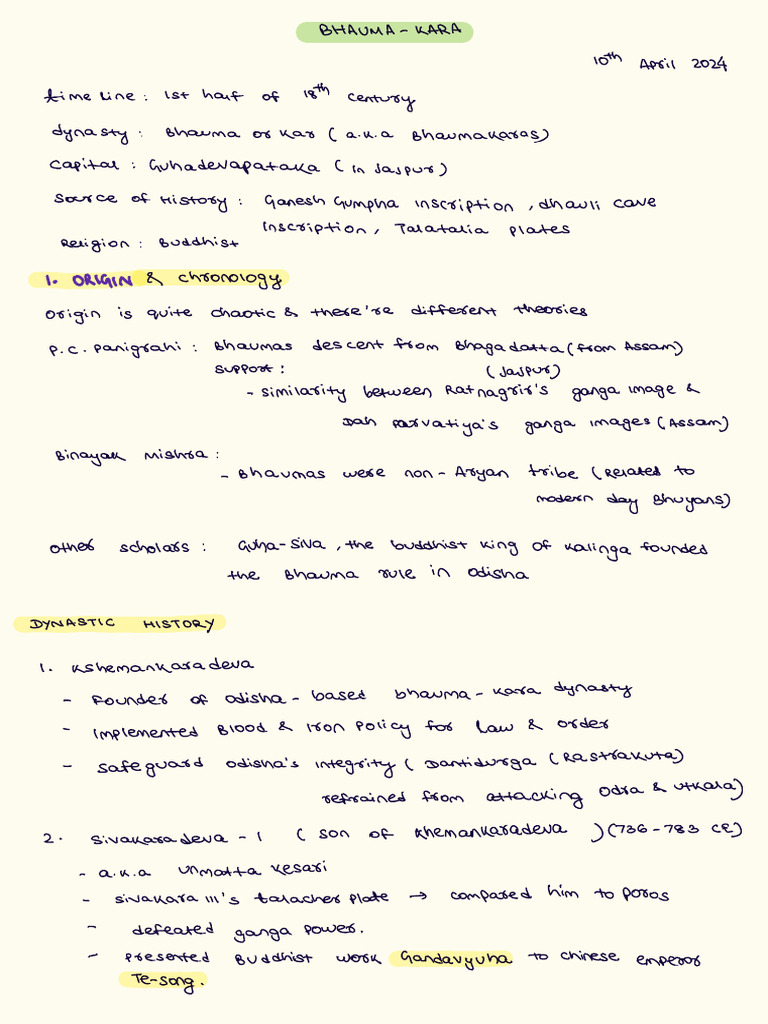 BHAUMA - KARA
10th April 2024
time line : 1st half of 18th century
dynasty : Bhauma or Kar ( a.k.a Bhaumakaras)
Capital : Guhadevapataka ( in Jajpur )
Source of History : Ganesh Gumpha inscription , dhauli cave
inscription , Talatalia plates
Religion : Buddhist
1. ORIGIN & chronology
origin is quite chaotic & there're different theories
P.C. Panigrahi : Bhaumas descent from Bhagadatta (from Assam)
support : (Jajpur)
- similarity between Ratnagrir's ganga image &
Dah Parvatiya's ganga images (Assam)
Binayak Mishra :
- Bhaumas were non-Aryan tribe (Related to
modern day Bhuyans)
other scholars : Guha-Siva , the buddhist king of Kalinga founded
the Bhauma rule in odisha
DYNASTIC HISTORY
1. Kshemankaradeva
- Founder of odisha - based bhauma - kara dynasty
- implemented Blood & Iron policy for Law & order
- safeguard odisha's integrity ( Dantidurga (Rastrakuta)
refrained from attacking Odra & Utkala)
2. Sivakaradeva - 1 ( son of Khemankaradeva ) (736 - 783 CE)
- a.k.a Unmatta Kesari
- Sivakara III's talacher plate → compared him to poros
- defeated ganga power.
- presented Buddhist work Gandavyuha to chinese emperor
Te-song.